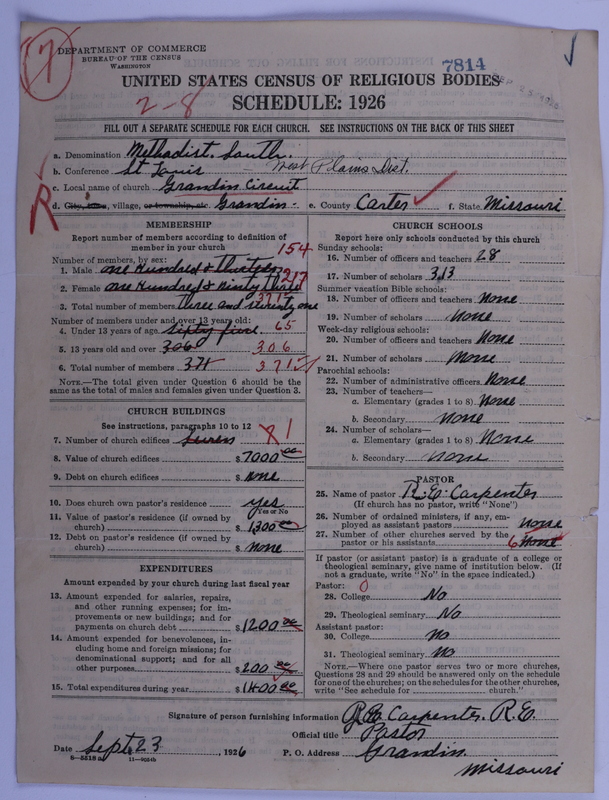 7
DEPARTMENT OF COMMERCE
BUREAU OF THE CENSUS
WASHINGTON
7814
UNITED STATES CENSUS OF RELIGIOUS BODIES
2-8
SCHEDULE: 1926
FILL OUT A SEPARATE SCHEDULE FOR EACH CHURCH. SEE INSTRUCTIONS ON THE BACK OF THIS SHEET
a. Denomination Methodist. South.
b. Conference St Louis — West Plains Dist.
c. Local name of church Grandin Circuit
R
d. City, town, village, or township, etc Grandin - e. County Carter f. State Missouri
MEMBERSHIP
Report number of members according to definition of member in your church
Number of members, by sex: 154
1. Male one Hundred & thirteen
2. Female one Hundred & Ninty three 217
3. Total number of members three and seventy one 371
Number of members under and over 13 years old:
4. Under 13 years of age sixty five 65
5. 13 years old and over 306 306
6. Total number of members 371 371
NOTE.—The total given under Question 6 should be
same as the total of males and females given under Question 3.
CHURCH BUILDINGS
See instructions, paragraphs 10 to 12
7. Number of church edifices seven 1
8. Value of church edifices $ 7000 00
9. Debt on church edifices $ none
10. Does church own pastor's residence yes
Yes or No
11. Value of pastor's residence (if owned by
church) $ 1300 00
12. Debt on pastor's residence (if owned by
church) $ none
EXPENDITURES
Amount expended by your church during last fiscal year
13. Amount expended for salaries, repairs,
and other running expenses; for im-
provements or new buildings; and for
payments on church debt $ 1200 00
14. Amount expended for benevolences, in-
cluding home and foreign missions; for
denominational support; and for all
other purposes $ 200 00
15. Total expenditures during year $ 1400 00
CHURCH SCHOOLS
Report here only schools conducted by this church
Sunday schools:
16. Number of officers and teachers 28
17. Number of scholars 313
Summer vacation Bible schools:
18. Number of officers and teachers None
19. Number of scholars None
Week-day religious schools:
20. Number of officers and teachers None
21. Number of scholars None
Parochial schools:
22. Number of administrative officers None
23. Number of teachers—
a. Elementary (grades 1 to 8) None
b. Secondary None
24. Number of scholars—
a. Elementary (grades 1 to 8) None
b. Secondary None
PASTOR
25. Name of pastor R. E. Carpenter
(If church has no pastor, write "None")
26. Number of ordained ministers, if any, em-
ployed as assistant pastors none
27. Number of other churches served by the
pastor or his assistants 6 None
If pastor (or assistant pastor) is a graduate of a college or
theological seminary, give name of institution below. (If
not a graduate, write "No" in the space indicated.)
Pastor: 0
28. College No
29. Theological seminary No
Assistant pastor:
30. College no
31. Theological seminary no
NOTE.—Where one pastor serves two or more churches,
Questions 28 and 29 should be answered only on the schedule
for one of the churches; on the schedules for the other churches,
write "See schedule for church."
Signature of person furnishing information Carpenter. R. E.
Official title Pastor
Date Sept. 23, 1926 P. O. Address Grandin.
Missouri